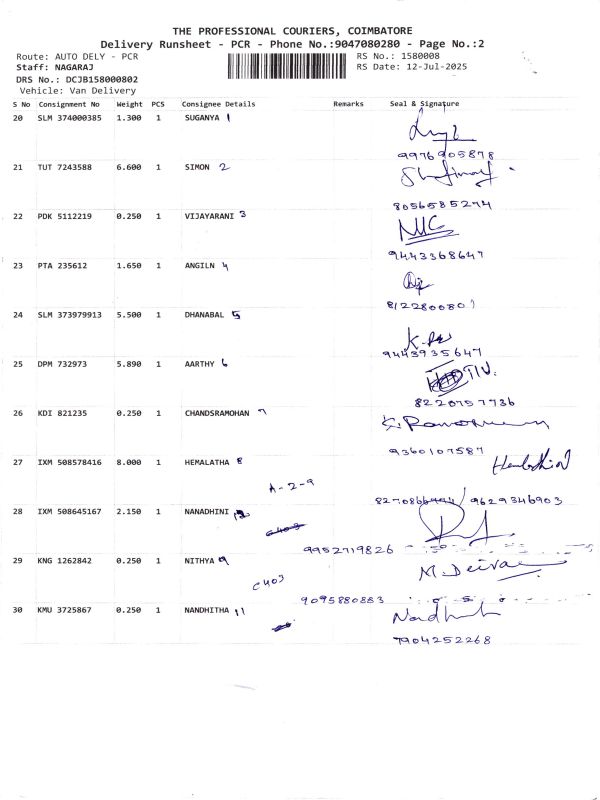 THE PROFESSIONAL COURIERS, COIMBATORE
Delivery Runsheet - PCR - Phone No.:9047080280 - Page No.:2
Route: AUTO DELY - PCR
Staff: NAGARAJ
DRS No.: DCJB158000802
Vehicle: Van Delivery
RS No.: 1580008
RS Date: 12-Jul-2025
S No Consignment No Weight PCS Consignee Details Remarks Seal & Signature
20 SLM 374000385 1.300 1 SUGANYA 1
9976905878
21 TUT 7243588 6.600 1 SIMON 2
8056585274
22 PDK 5112219 0.250 1 VIJAYARANI 3
9443368647
23 PTA 235612 1.650 1 ANGILN 4
8122800801
24 SLM 373979913 5.500 1 DHANABAL 5
9443935647
25 DPM 732973 5.890 1 AARTHY 6
8220757736
26 KDI 821235 0.250 1 CHANDSRAMOHAN 7
9360107587
27 IXM 508578416 8.000 1 HEMALATHA 8
A-2-9
9629346903
28 IXM 508645167 2.150 1 NANADHINI
9952719826
29 KNG 1262842 0.250 1 NITHYA 9 M. Deiva
C403
9095880883
30 KMU 3725867 0.250 1 NANDHITHA 11
7904252268